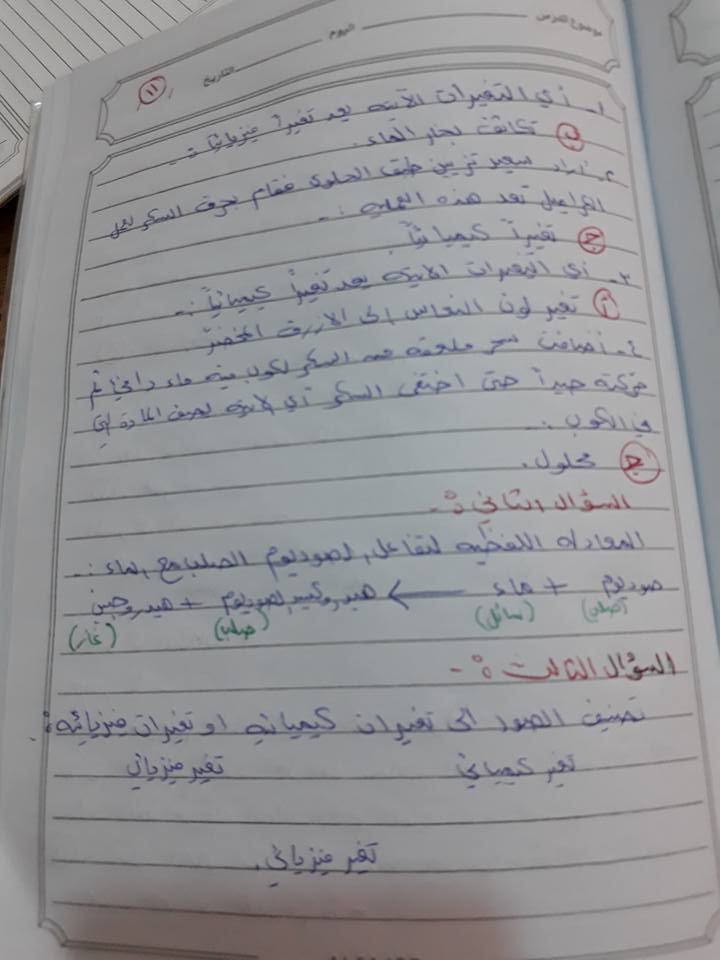 موضوع الدرس اليوم التاريخ
١١
١- أي التغيرات الآتية يعد تغيراً فيزيائياً :-
ب تكاثف بخار الماء.
٢- أراد سعيد تزيين طبق الحلوى فقام بحرق السكر لعمل
الكراميل تعد هذه العملية :-
ج تغيراً كيميائياً.
٣- أي التغيرات الآتية يعد تغيراً كيميائياً :-
أ تغير لون النحاس إلى الازرق المخضر
٤- أضافت سحر ملعقة من السكر لكوب فيه ماء دافئ ثم
حركته جيداً حتى اختفى السكر أي الآتية يصف المادة التي
في الكوب :-
ج محلول.
السؤال الثاني :-
المعادلة اللفظية لتفاعل الصوديوم الصلب مع الماء :-
صوديوم + ماء ← هيدروكسيد الصوديوم + هيدروجين
(صلب) (سائل) (صلب) (غاز)
السؤال الثالث :-
تصنيف الصور الى تغيرات كيميائية او تغيرات فيزيائية :
تغير كيميائي تغير فيزيائي
تغير فيزيائي.